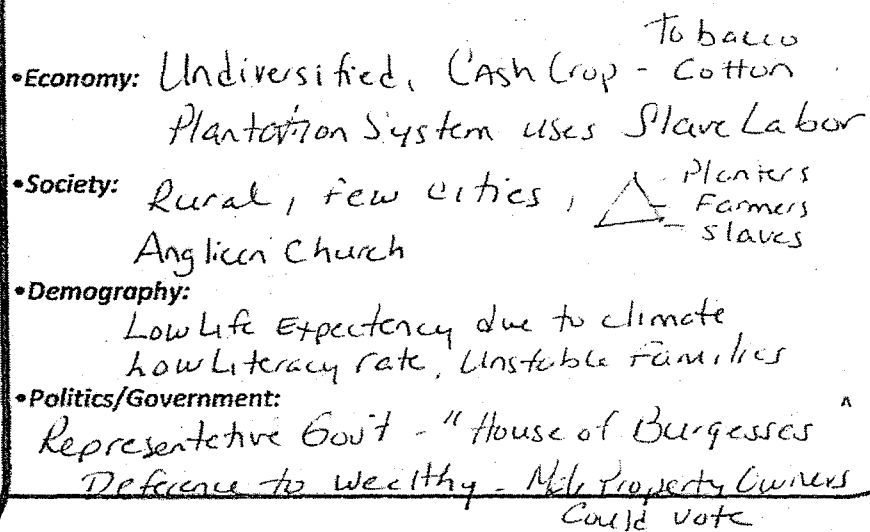 Tobacco
•Economy: Undiversified, Cash Crop - Cotton
Plantation System uses Slave Labor
•Society: Rural, few cities, - Planters
- Farmers
- slaves
Anglican Church
•Demography:
Low Life Expectency due to climate
Low Literacy rate, Unstable Families
•Politics/Government:
Representative Gov't - "House of Burgesses
Deference to wealthy - Male Property Owners
Could vote